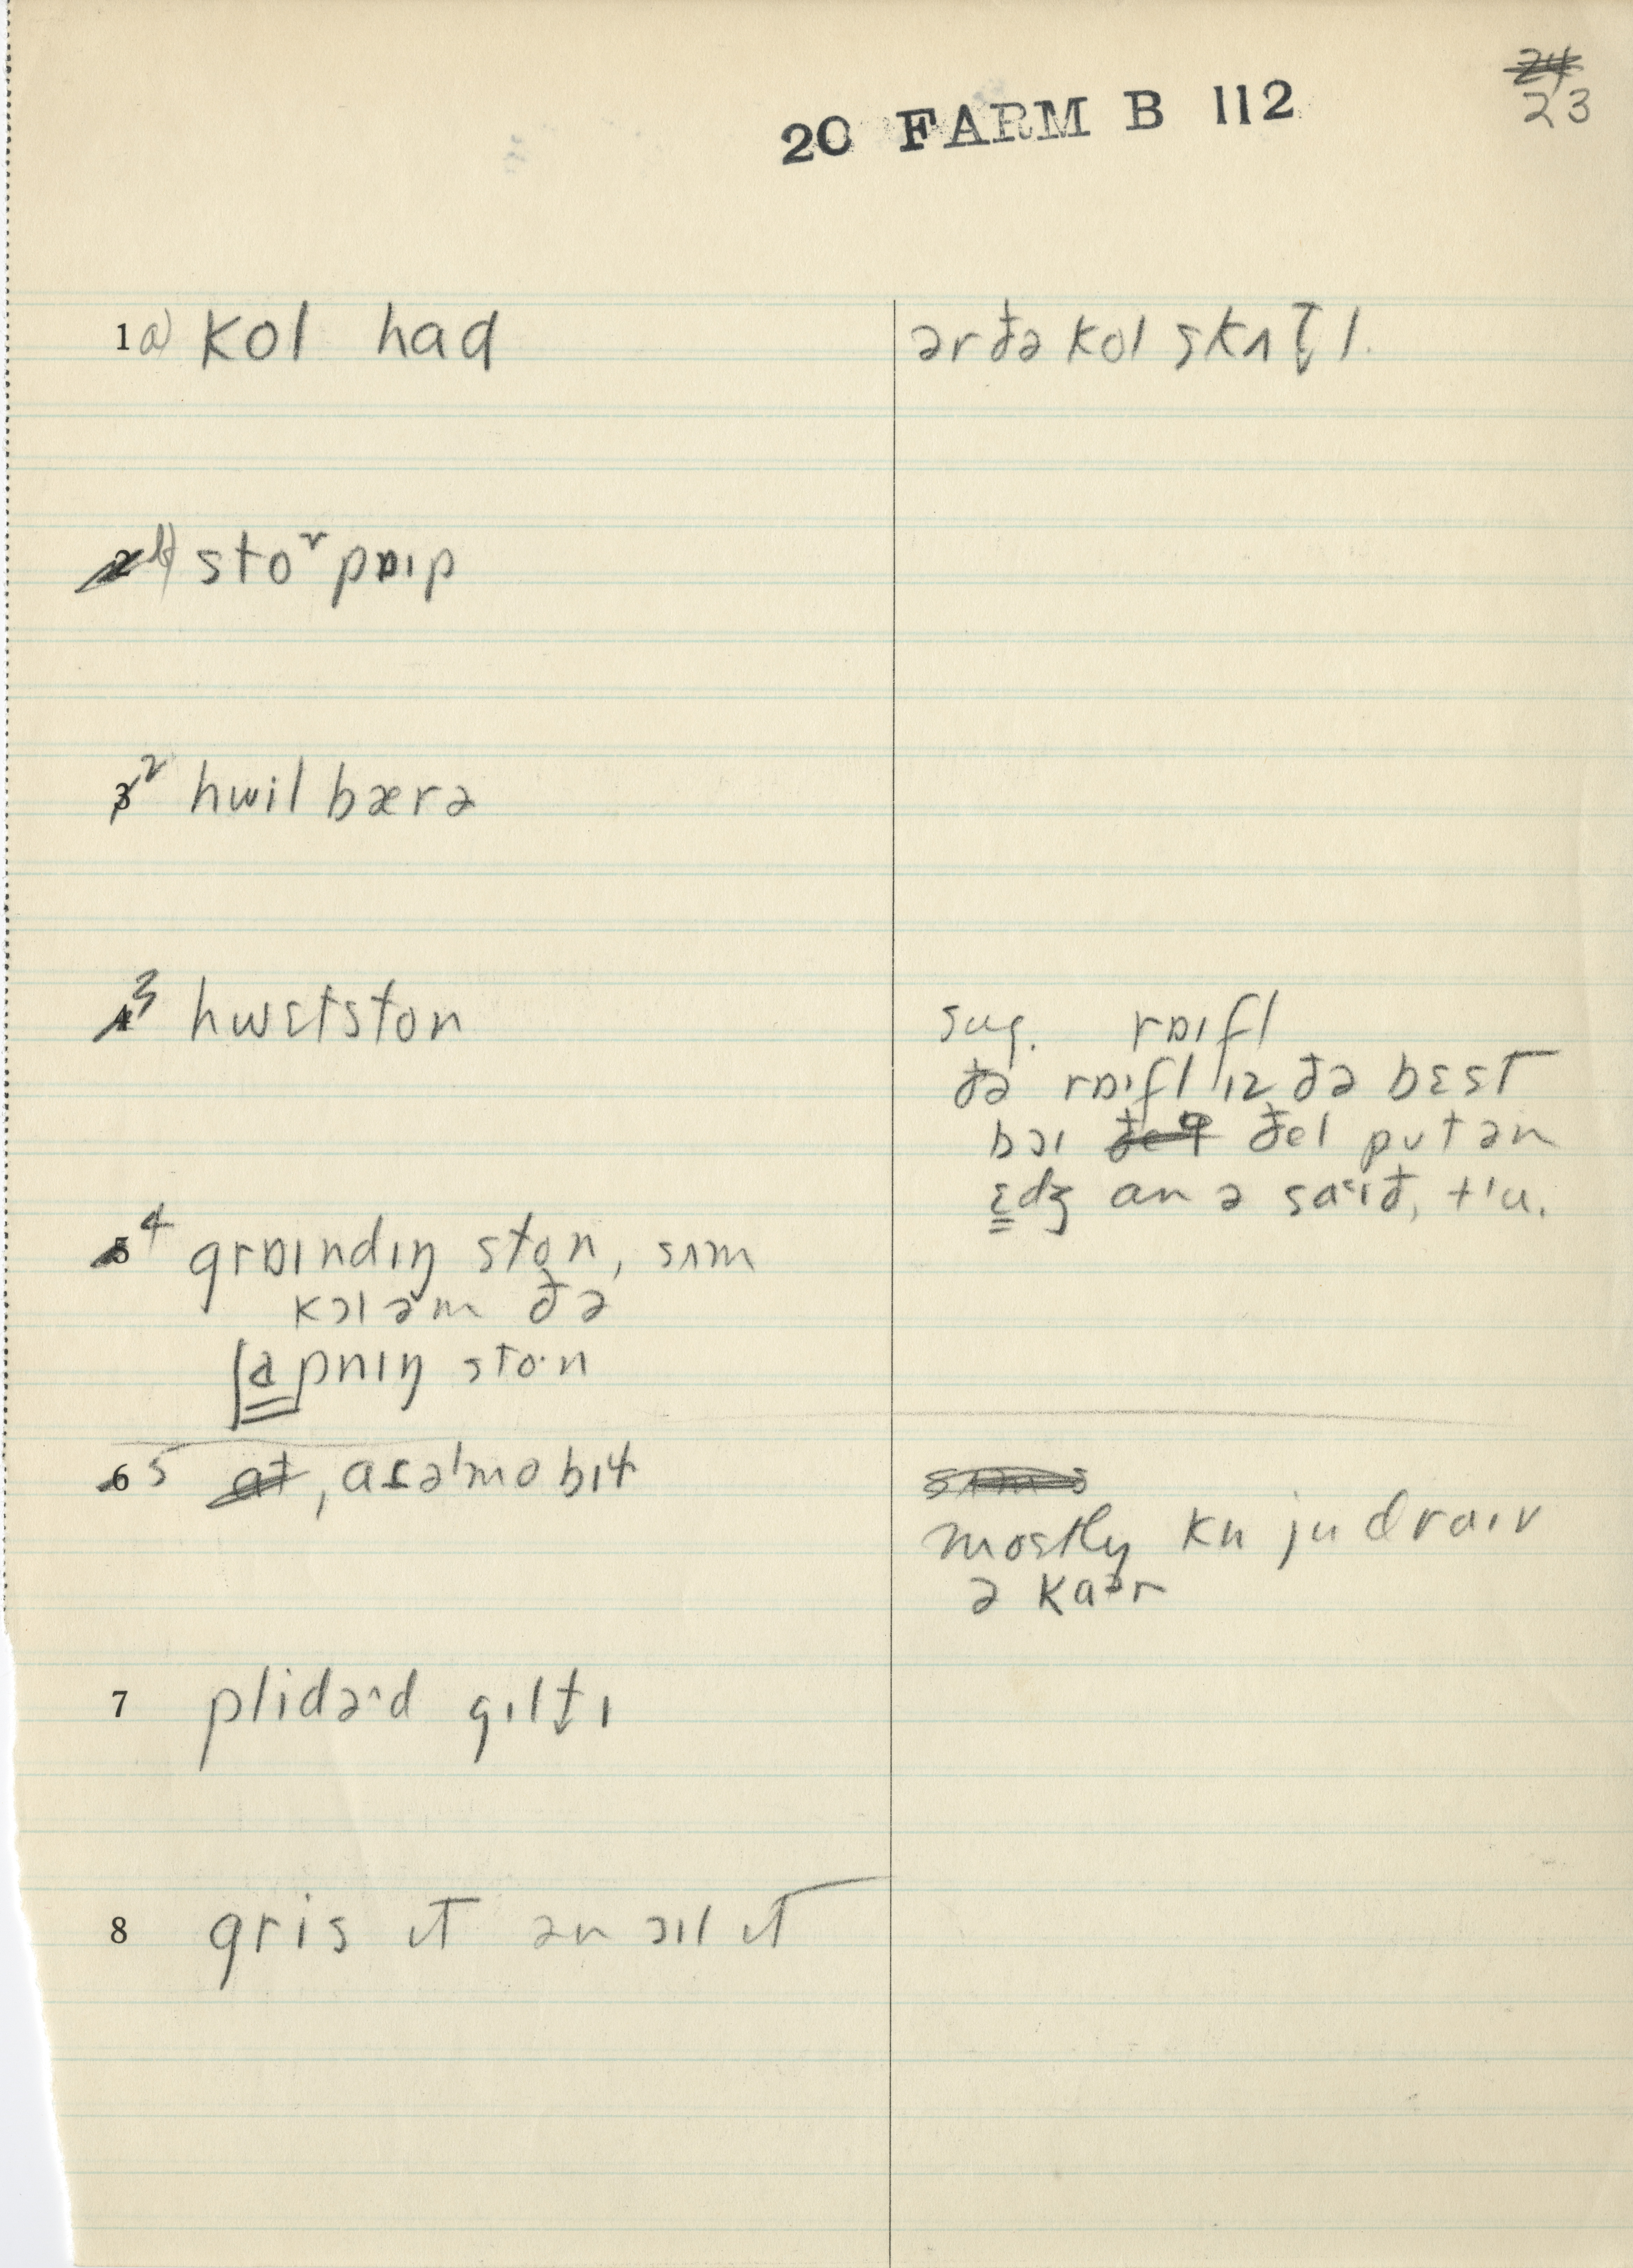 24
23
20 FARM B 112
1 a) kol had
ər ðə kol skʌtl.
2 b) stoʳ pɒıp
3 2 hwil bærə
4 3 hwɛtston
sug. rɒıfl
ðə rɒıfl ız ðə bɛst
bɔı ðel pʊt ən
ɛdʒ an ə saᵋıð, t'u.
5 4 grɒındıŋ ston, sʌm
kɔl əm ðə
ʃapnıŋ sto·n
6 5 at, aɾəˈmobıɫ
mostly kn ju draıv
ə kaᵊr
7 plidəʳd gıltı
8 gris ıt ən ɔıl ıt